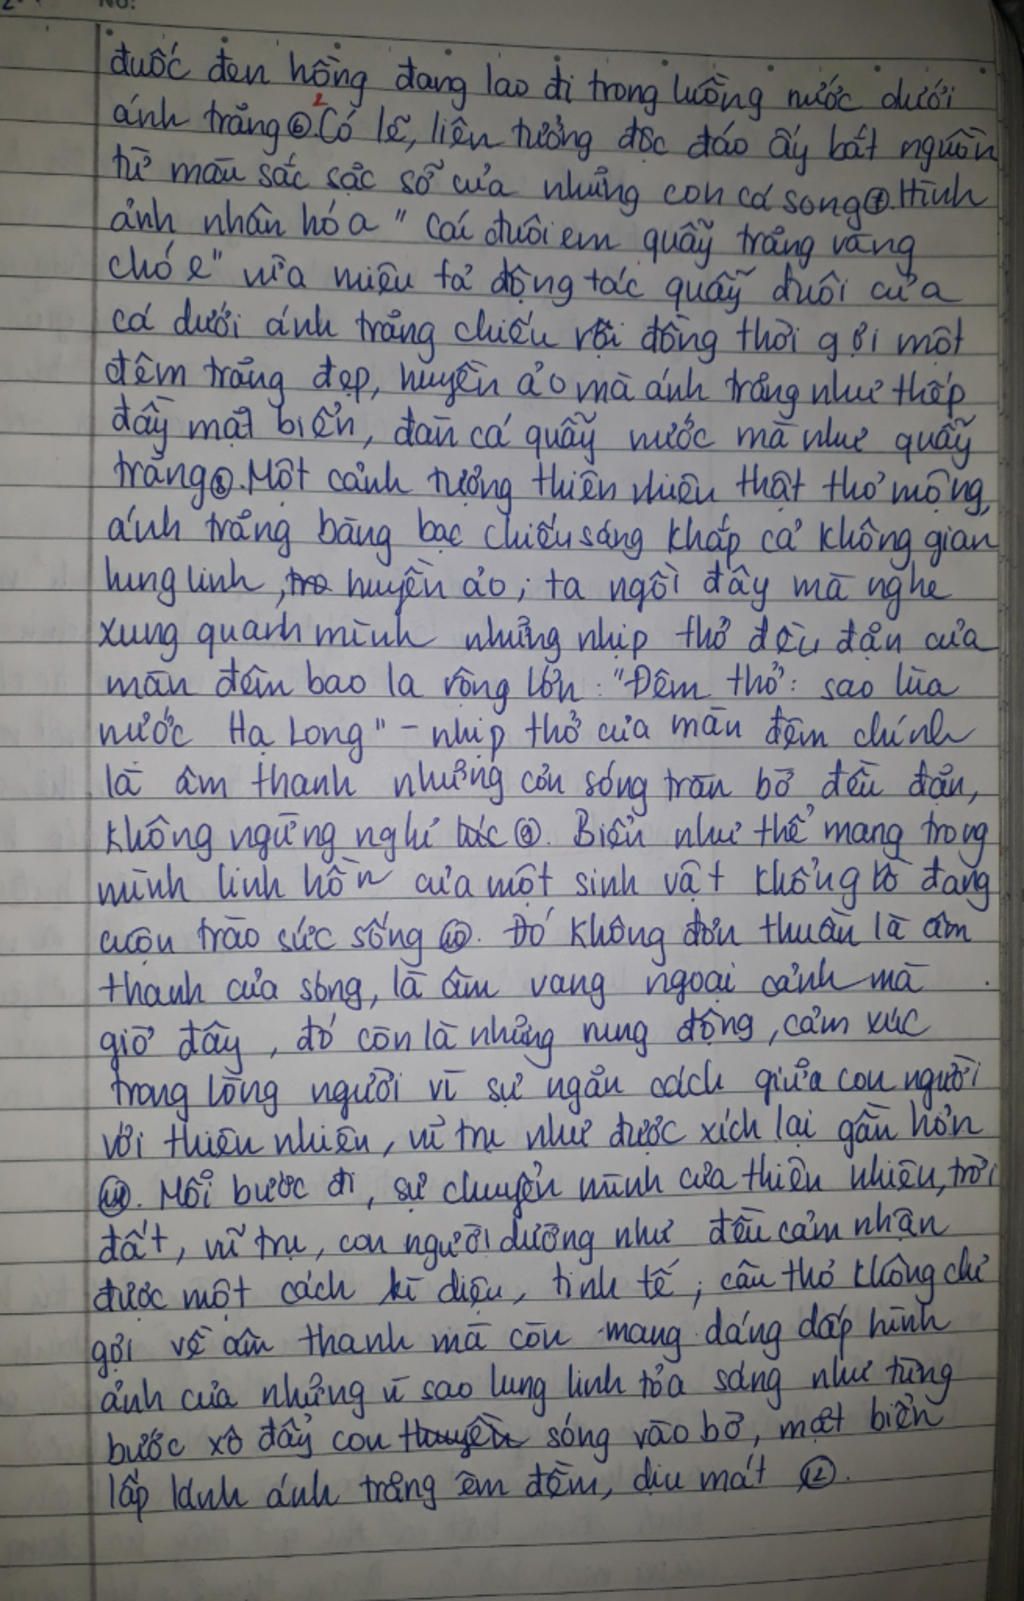 đuốc đen hồng đang lao đi trong luồng nước dưới
ánh trăng ⑥. Có lẽ, liên tưởng độc đáo ấy bắt nguồn
từ màu sắc sặc sỡ của những con cá song ⑦. Hình
ảnh nhân hóa "Cái đuôi em quẫy trăng vàng
chóe" vừa miêu tả động tác quẫy đuôi của
cá dưới ánh trăng chiếu rọi đồng thời gợi một
đêm trăng đẹp, huyền ảo mà ánh trăng như thếp
đầy mặt biển, đàn cá quẫy nước mà như quẫy
trăng ⑧. Một cảnh tượng thiên nhiên thật thơ mộng,
ánh trăng bàng bạc chiếu sáng khắp cả không gian
lung linh, huyền ảo; ta ngồi đây mà nghe
xung quanh mình những nhịp thở đều đặn của
màn đêm bao la rộng lớn: "Đêm thở: sao lùa
nước Hạ Long" - nhịp thở của màn đêm chính
là âm thanh những cơn sóng tràn bờ đều đặn,
không ngừng nghỉ ⑨. Biển như thể mang trong
mình linh hồn của một sinh vật khổng lồ đang
cuộn trào sức sống ⑩. Đó không đơn thuần là âm
thanh của sóng, là âm vang ngoại cảnh mà
giờ đây, đó còn là những rung động, cảm xúc
trong lòng người vì sự ngăn cách giữa con người
với thiên nhiên, vũ trụ như được xích lại gần hơn
⑪. Mỗi bước đi, sự chuyển mình của thiên nhiên, trời
đất, vũ trụ, con người dường như đều cảm nhận
được một cách kì diệu, tinh tế; câu thơ không chỉ
gợi về âm thanh mà còn mang dáng dấp hình
ảnh của những vì sao lung linh tỏa sáng như từng
bước xô đẩy con sóng vào bờ, mặt biển
lấp lánh ánh trăng êm đềm, dịu mát ⑫.